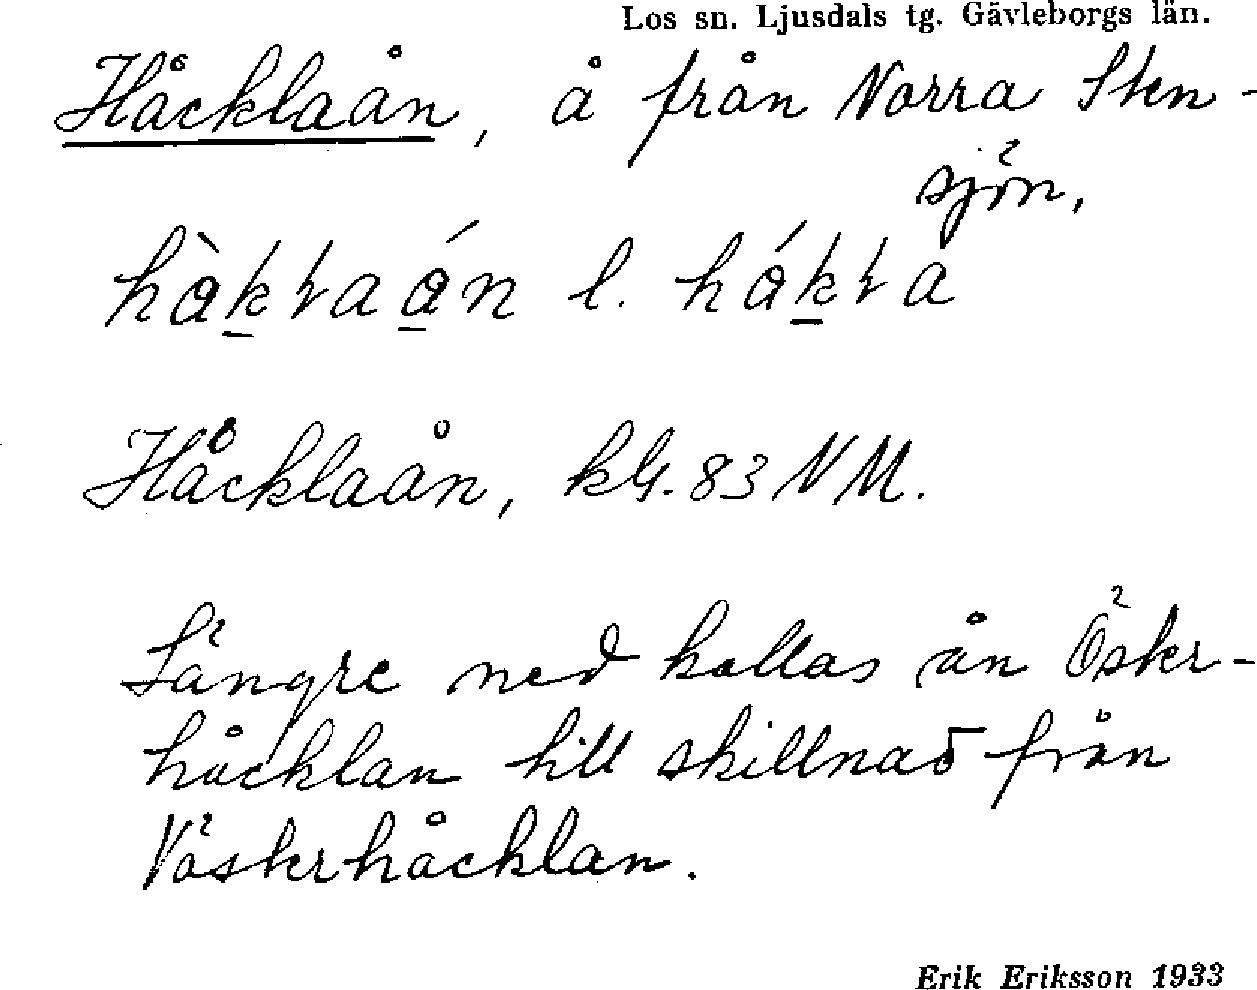 Los sn. Ljusdals tg. Gävleborgs län.
Håcklaån, å från Norra Sten-
sjön,
l.
Håcklaån, kbl. 83 NM.
Längre ned kallas ån Öster-
håcklan till skillnad från
Västerhåcklan.
Erik Eriksson 1933